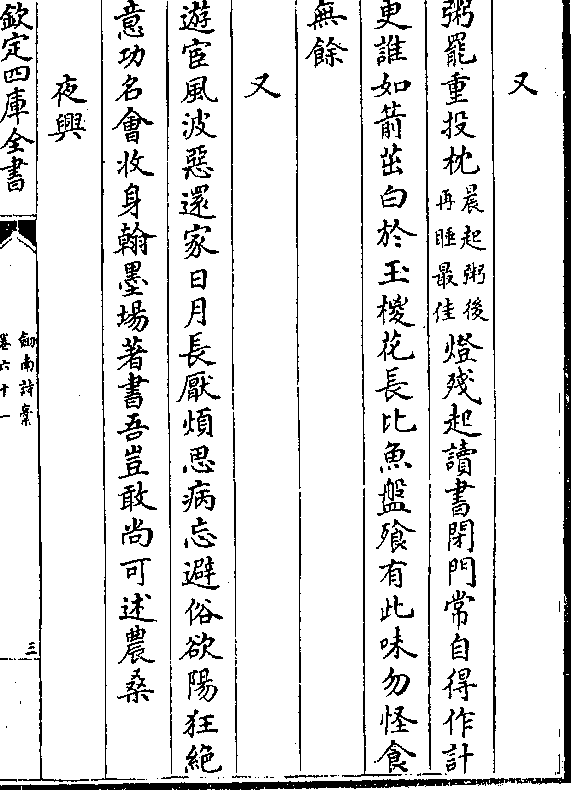 又
粥罷重投枕晨起粥後再睡最佳燈殘起讀書閉門常自得作計
更誰如箭茁白於玉椶花長比魚盤飱有此味勿怪食
無餘
又
遊宦風波惡還家日月長厭煩思病忘避俗欲陽狂絶
意功名會收身翰墨場著書吾豈敢尚可述農桑
夜興
欽定四庫全書
劒南詩稾
卷六十一
三